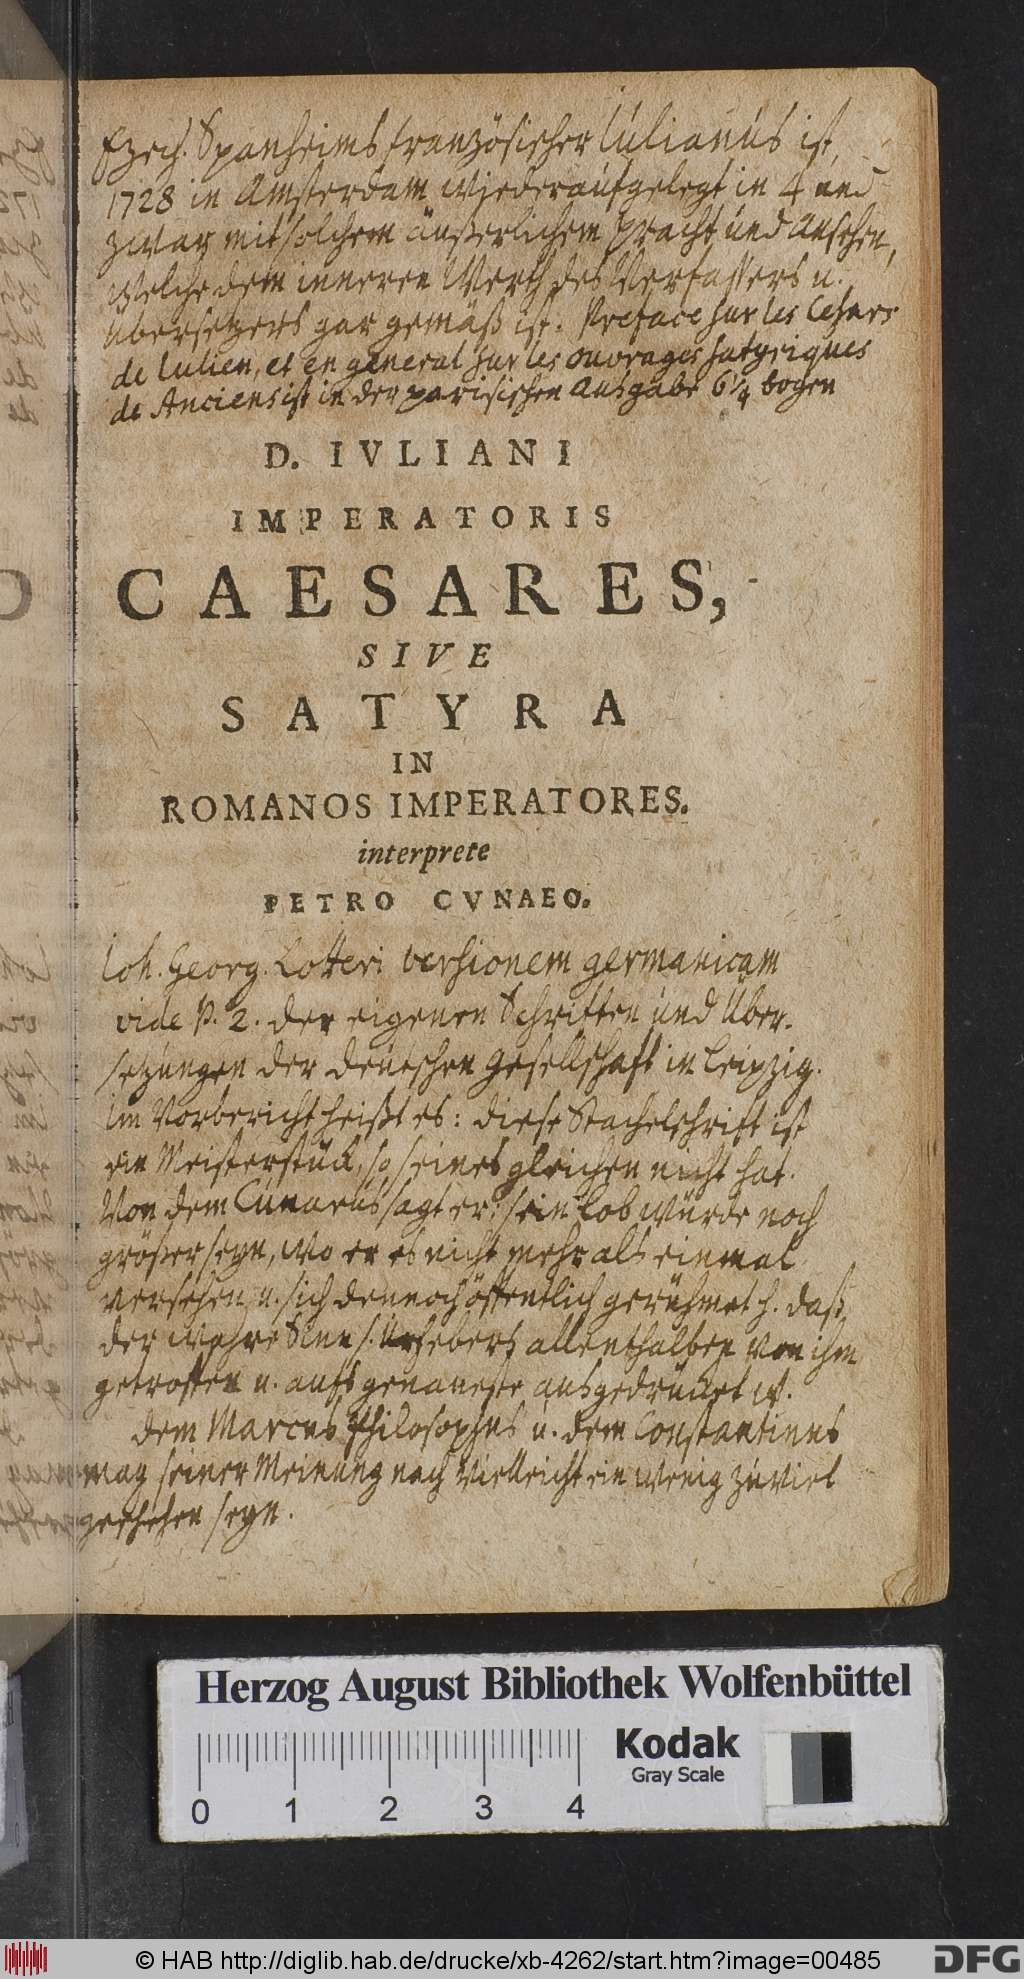 Ezech. Spanheims französischer Iulianus ist,
1728 in Amsterdam wiederaufgelegt in 4 und
zwar mit solchem äußerlichem pracht und Ansehen,
Welche dem inneren Werth des Verfassers u.
übersetzers gar gemäß ist. Preface sur les Cesars
de Iulien, et en general sur les ouvrages satyriques
de Anciens ist in der parisischen Ausgabe 6 1/4 bogen
D. IVLIANI
IMPERATORIS
CAESARES,
SIVE
SATYRA
IN
ROMANOS IMPERATORES.
interprete
PETRO CVNAEO.
Ioh. Georg. Lotteri versionem germanicam
vide P. 2. der eigenen Schriften und Über-
setzungen der deutschen Gesellschaft in Leipzig.
Im Vorbericht heißt es: diese Stachelschrift ist
ein Meisterstück, so seines gleichen nicht hat.
Von dem Cunaeus sagt er: sein Lob würde noch
größer seyn, wo er es nicht mehr als einmal
versehen u. sich dennoch öffentlich gerühmet h. daß
der wahre Sinn s. Urhebers allenthalben von ihm
getroffen u. aufs genaueste ausgedrücket w.
dem Marcus Philosophus u. dem Constantinus
mag seiner Meinung nach vielleicht ein wenig zuviel
geschehen seyn.
Herzog August Bibliothek Wolfenbüttel
Kodak
Gray Scale
0 1 2 3 4
© HAB http://diglib.hab.de/drucke/xb-4262/start.htm?image=00485
DFG